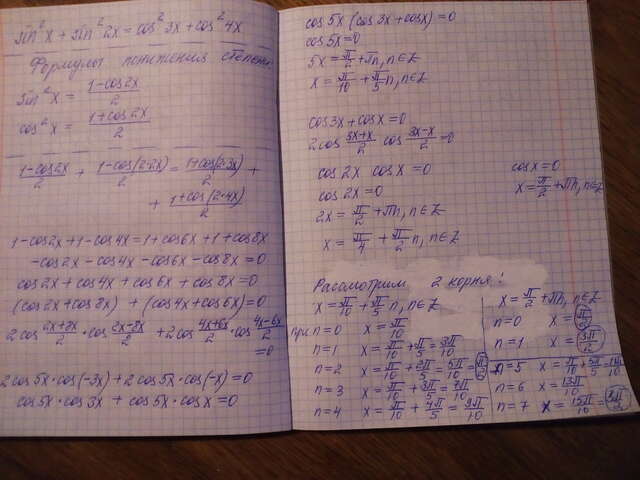 sin²x + sin²2x = cos²3x + cos²4x
Формулы понижения степени
sin²x = (1-cos2x)/2
cos²x = (1+cos2x)/2
(1-cos2x)/2 + (1-cos(2·2x))/2 = (1+cos(2·3x))/2 +
+ (1+cos(2·4x))/2
1-cos2x+1-cos4x=1+cos6x+1+cos8x
-cos2x-cos4x-cos6x-cos8x=0
cos2x+cos4x+cos6x+cos8x=0
(cos2x+cos8x) + (cos4x+cos6x)=0
2cos (2x+8x)/2 · cos (2x-8x)/2 + 2cos (4x+6x)/2 · cos (4x-6x)/2
=0
2cos5x·cos(-3x)+2cos5x·cos(-x)=0
cos5x·cos3x + cos5x·cosx=0
cos5x (cos3x+cosx)=0
cos5x=0
5x=π/2+πn, n∈Z
x=π/10+π/5 n, n∈Z
cos3x+cosx=0
2cos (3x+x)/2 cos (3x-x)/2=0
cos2x cosx=0
cos2x=0
2x=π/2+πn, n∈Z
x=π/4+π/2 n, n∈Z
cosx=0
x=π/2+πn, n∈Z
Рассмотрим 2 корня!
x=π/10+π/5 n, n∈Z
при n=0 x=π/10
n=1 x=π/10+π/5=3π/10
n=2 x=π/10+2π/5=5π/10=π/2
n=3 x=π/10+3π/5=7π/10
n=4 x=π/10+4π/5=9π/10
x=π/2+πn, n∈Z
n=0 x=π/2
n=1 x=3π/2
n=5 x=π/10+5π/5=11π/10
n=6 x=13π/10
n=7 x=15π/10=3π/2